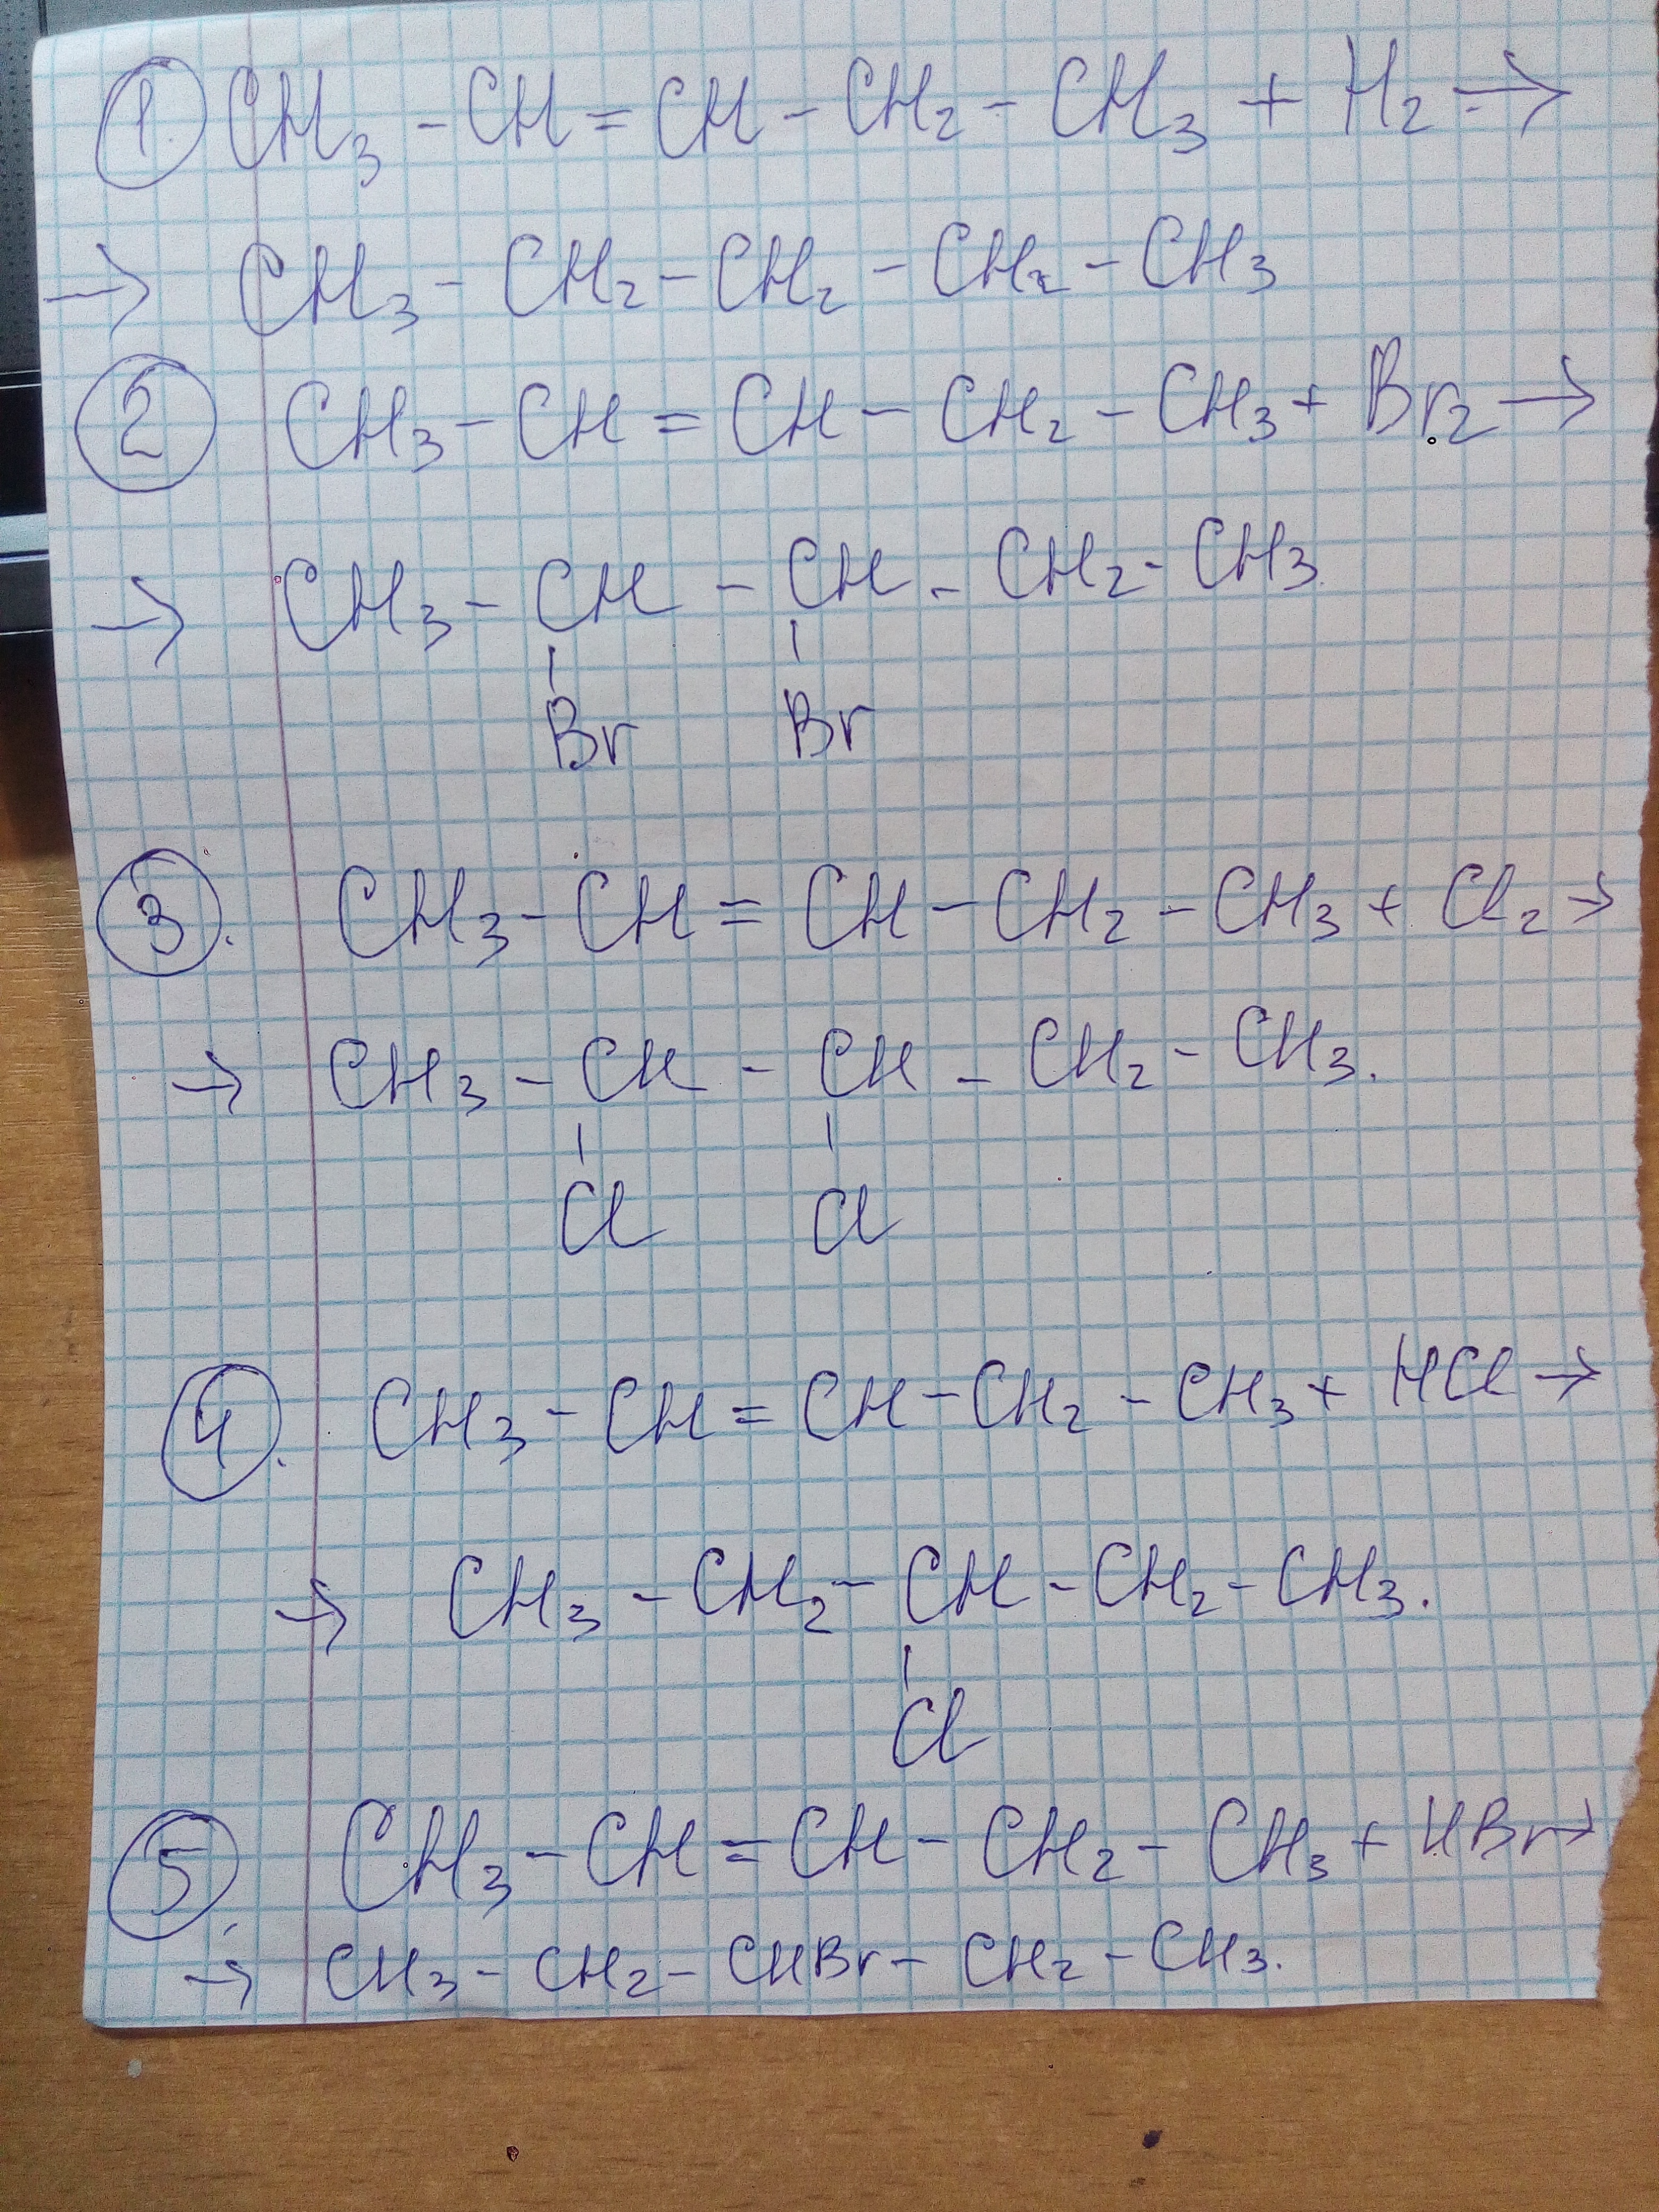 1. CH3 - CH = CH - CH2 - CH3 + H2 →
→ CH3 - CH2 - CH2 - CH2 - CH3
2 CH3 - CH = CH - CH2 - CH3 + Br2 →
→ CH3 - CH - CH - CH2 - CH3.
Br Br
3. CH3 - CH = CH - CH2 - CH3 + Cl2 →
→ CH3 - CH - CH - CH2 - CH3.
Cl Cl
4. CH3 - CH = CH - CH2 - CH3 + HCl →
→ CH3 - CH2 - CH - CH2 - CH3.
Cl
5. CH3 - CH = CH - CH2 - CH3 + HBr →
→ CH3 - CH2 - CHBr - CH2 - CH3.